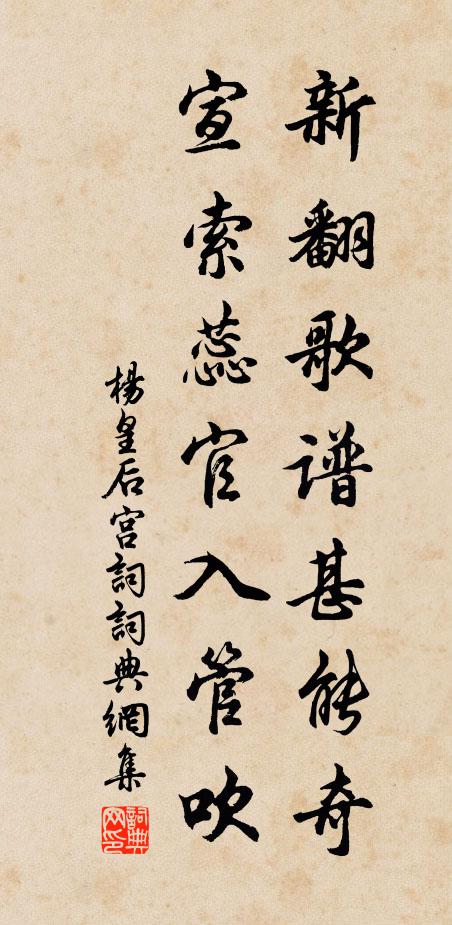 新翻歌谱甚能奇
宣索蕊官入管吹
楊皇后宫詞詞典網集
詞典网印